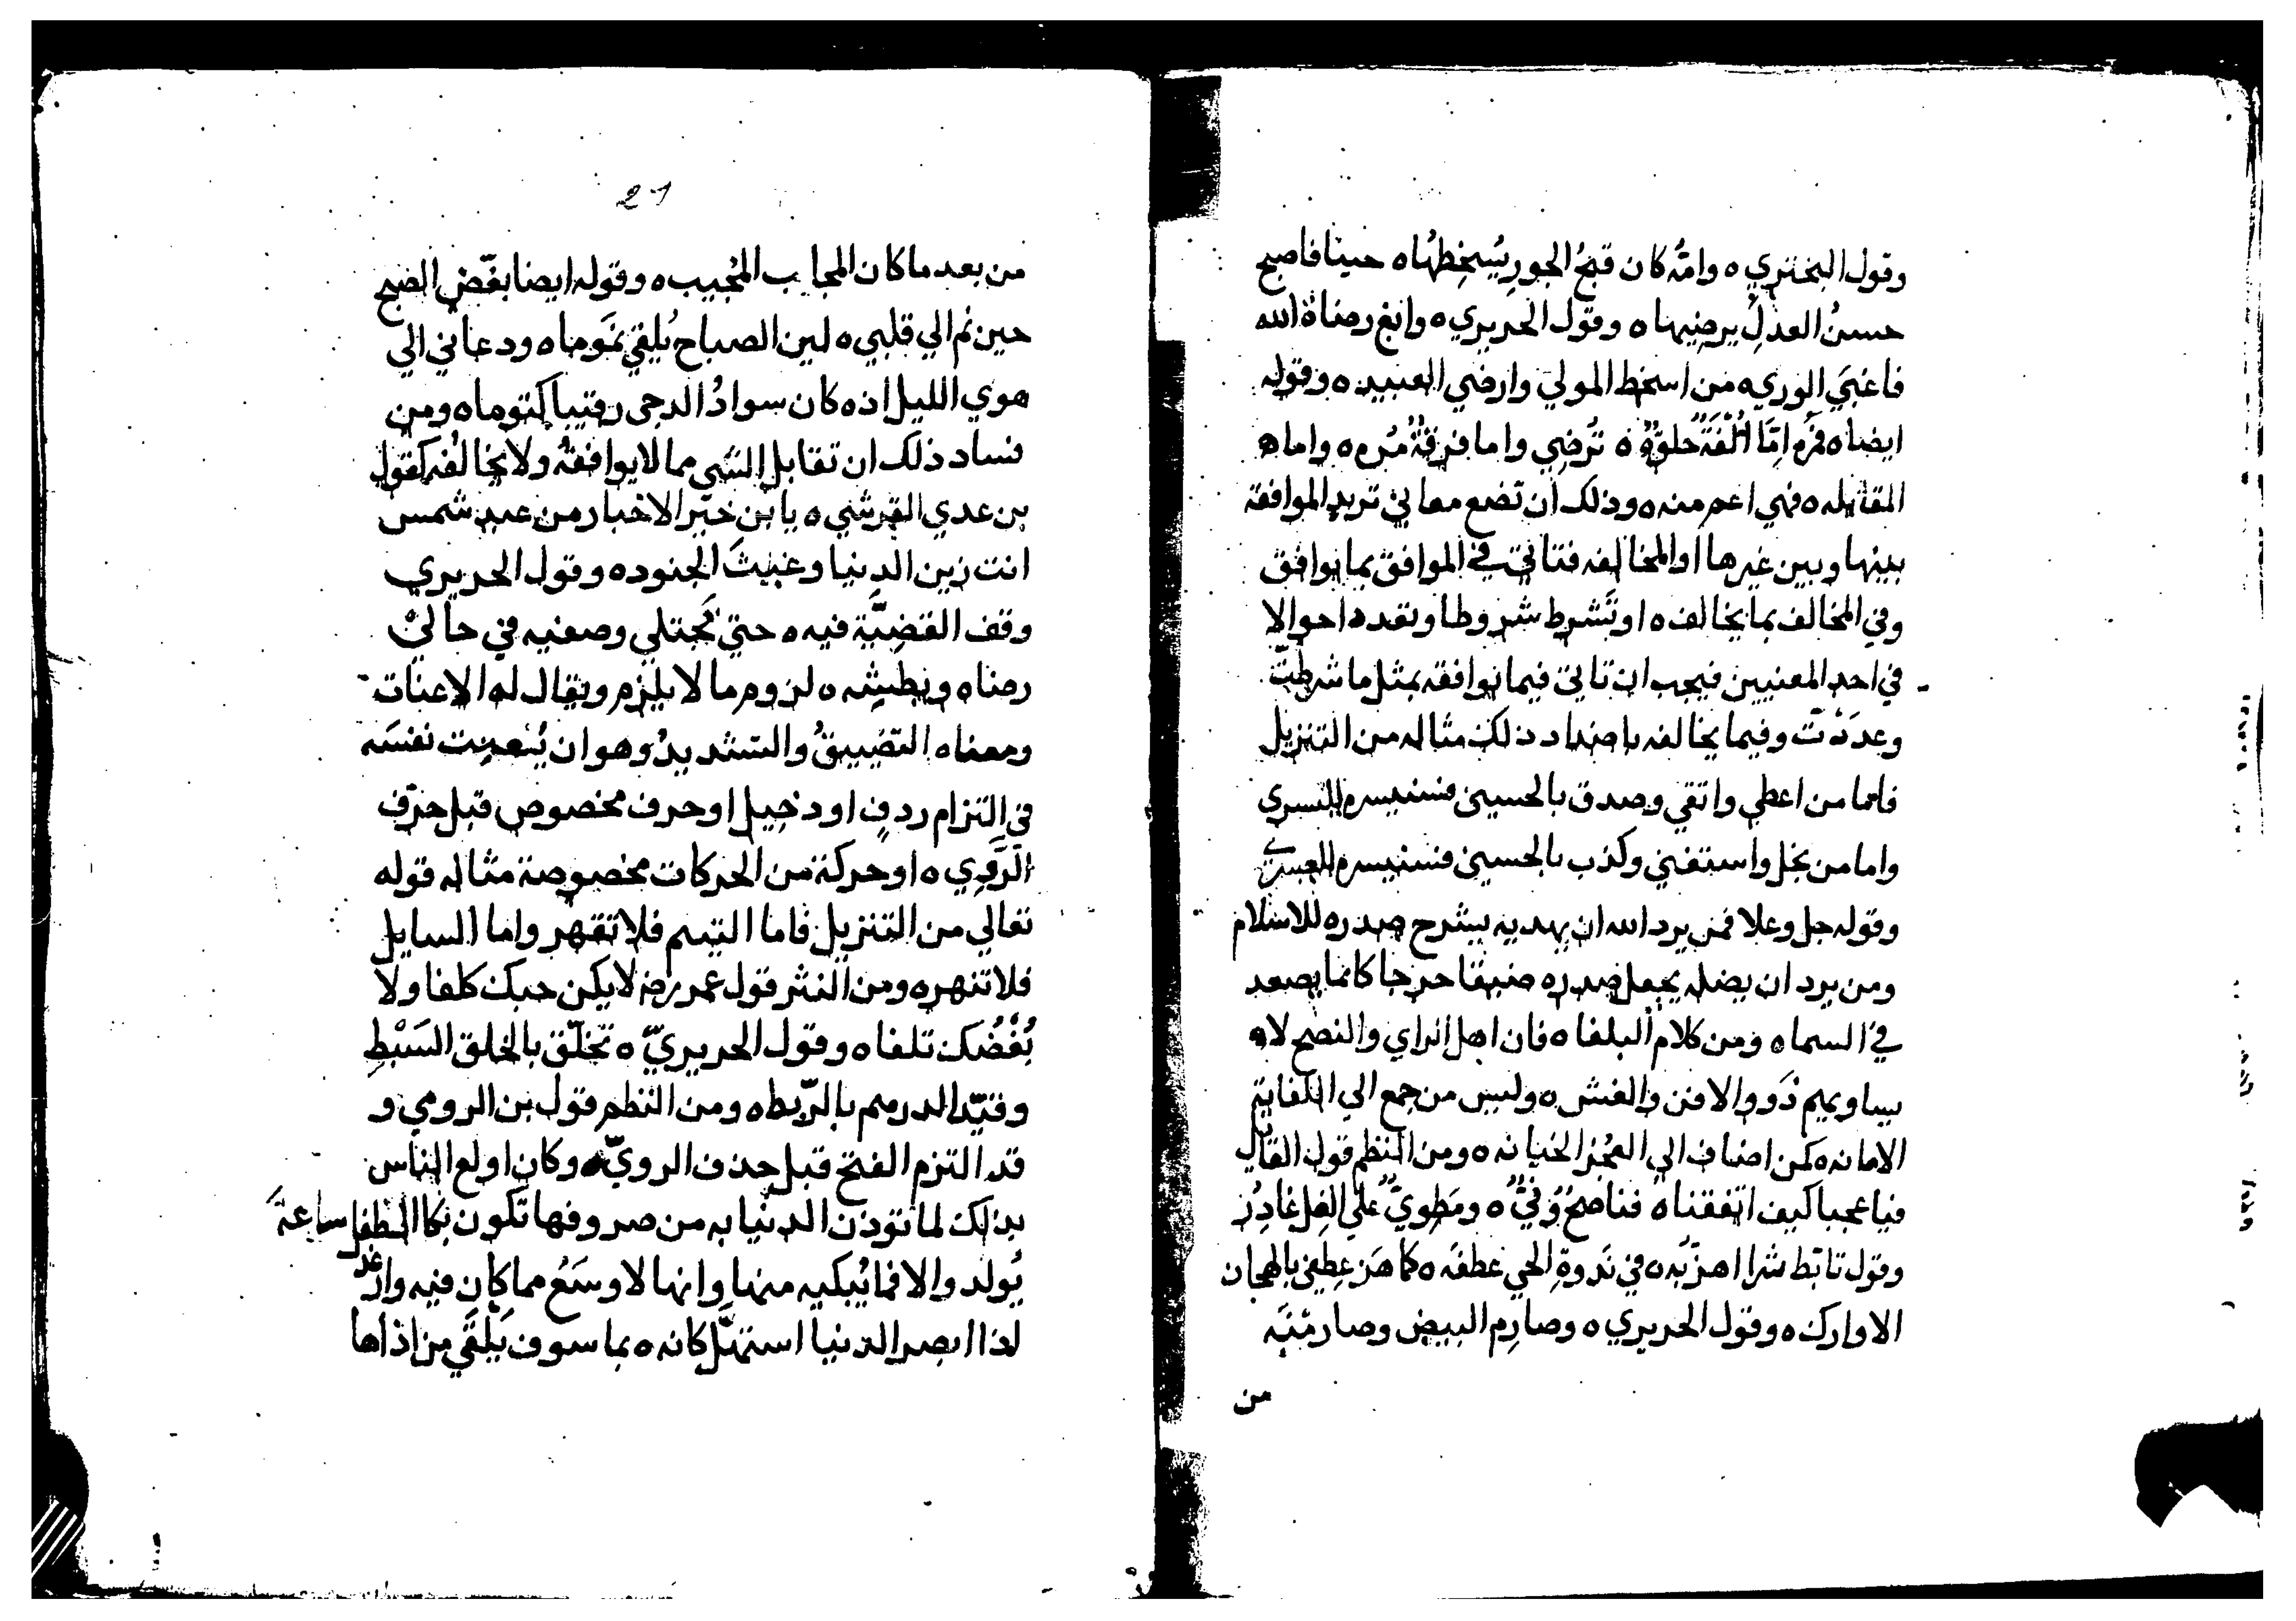 وقول البختري ه وامّه كان قبحُ الجورِ يُسخِطهُا ه حينا فاصبح
حسنُ العدلِ يرضِيها ه وقول الحريري ه وابغ رضاة الله
فاغبَي الوري ه من اسخط المولي وارضي العبيد ه وقوله
ايضا ه فرُم امّا اُلْفَةً حلوَةً ه تُرضِي واما فرقَةً مُره ه واما ه
المقابله ه فهي اعم منه ه وذلك ان تضع معاني تريد الموافقة
بينها وبين غيرها او المخالفه فتاتي في الموافق بما يوافق
وفي المخالف بما يخالف ه او تَشرط شروطا وتعدد احوالا
في احد المعنيين فيجب ان تاتي فيما يوافقه بمثل ما شرطتَ
وعدَدْتَ وفيما يخالفه باضداد ذلك مثاله من التنزيل
فاما من اعطي واتقي وصدق بالحسني فسنيسره لليسري
واما من بخل واستغني وكذب بالحسني فسنيسره للعسري
وقوله جل وعلا فمن يرد الله ان يهديه يشرح صدره للاسلام
ومن يرد ان يضله يجعل صدره ضيقا حرجا كانما يصعد
في السما ه ومن كلام البلغا ه فان اهل الراي والنصح لا ه
يساويهم ذَوو الافن والغش ه وليس من جمع الي الكفاية
الامانه ه كمن اضاف الي العجز الخيانه ه ومن النظم قول القايل
فيا عجبا كيف اتفقنا ه فناصحٌ وَفيٌّ ه ومَطويٌّ علي الغل غادِرُ
وقول تابّط شرا اهزّ به ه في نَدوةِ الحي عطفَه ه كما هَز عِطفي بالهجان
الاوارك ه وقول الحريري ه وصارِم البيض وصارمْنَه
من
21
من بعد ما كان المجاب المُجيب ه وقوله ايضا بغّض الصبح
حين نم الي قلبي ه لين الصباح يُلقي نَموما ه ودعاني الي
هوي الليل اذ ه كان سوادُ الدجى رقيبا كتوما ه ومن
فساد ذلك ان تقابل الشي مما لا يوافقه ولا يخالفه كقول
بن عدي القرشي ه يا بن خير الاخيار من عبد شمس
انت زين الدنيا وغيثَ الجنود ه وقول الحريري
وقف القضِيّة فيه ه حتي تجتلي وصفيه في حاليْ
رضاه وبطشِه ه لزوم ما لا يلزم ويقال له الاعنات
ومعناه التضييقُ والتشديدُ وهو ان يُعنِت نفسَه
في التزام ردفٍ او دخيل او حرف مخصوص قبل حرَف
الرَّوِي ه او حركة من الحركات مخصوصة مثاله قوله
تعالي من التنزيل فاما اليتيم فلا تقهر واما السايل
فلا تنهر ه ومن النثر قول عمر رضه لا يكن حبك كلفا ولا
بُغْضُك تلفا ه وقول الحريريّ ه تخلّق بالخلق السَبْطِ
وقيّد الدرهم بالرّبط ه ومن النظم قول بن الرومي و
قد التزم الفتح قبل حذف الرويّ ه وكان اولع الناس
بذلك لما توذن الدنيا به من صروفها تكون بكا الطفل ساعةَ
يُولد والا فما يُبكيه منها وانها لاوسَعُ مما كان فيه وارغد
اذا ابصر الدنيا استهلّ كانه ه بما سوف يَلقَي من اذاها